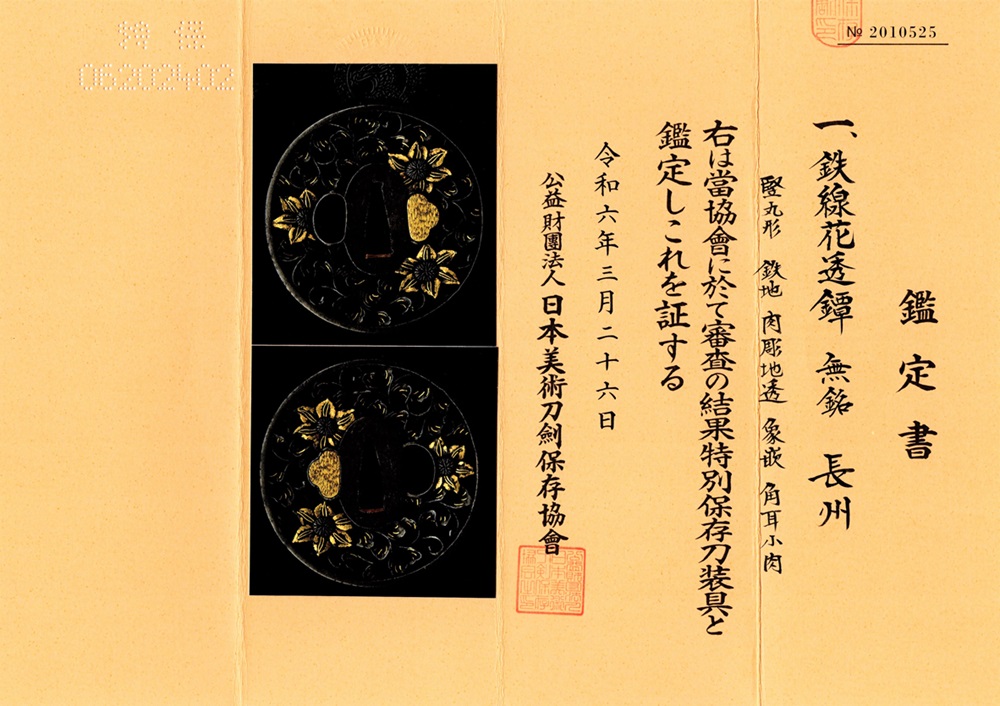 № 2010525
鑑定書
一、鉄線花透鐔 無銘 長州
竪丸形 鉄地 肉彫地透 象嵌 角耳小肉
右は當協會に於て審査の結果特別保存刀装具と
鑑定しこれを証する
令和六年三月二十六日
公益財團法人 日本美術刀劍保存協會
特保
06202402